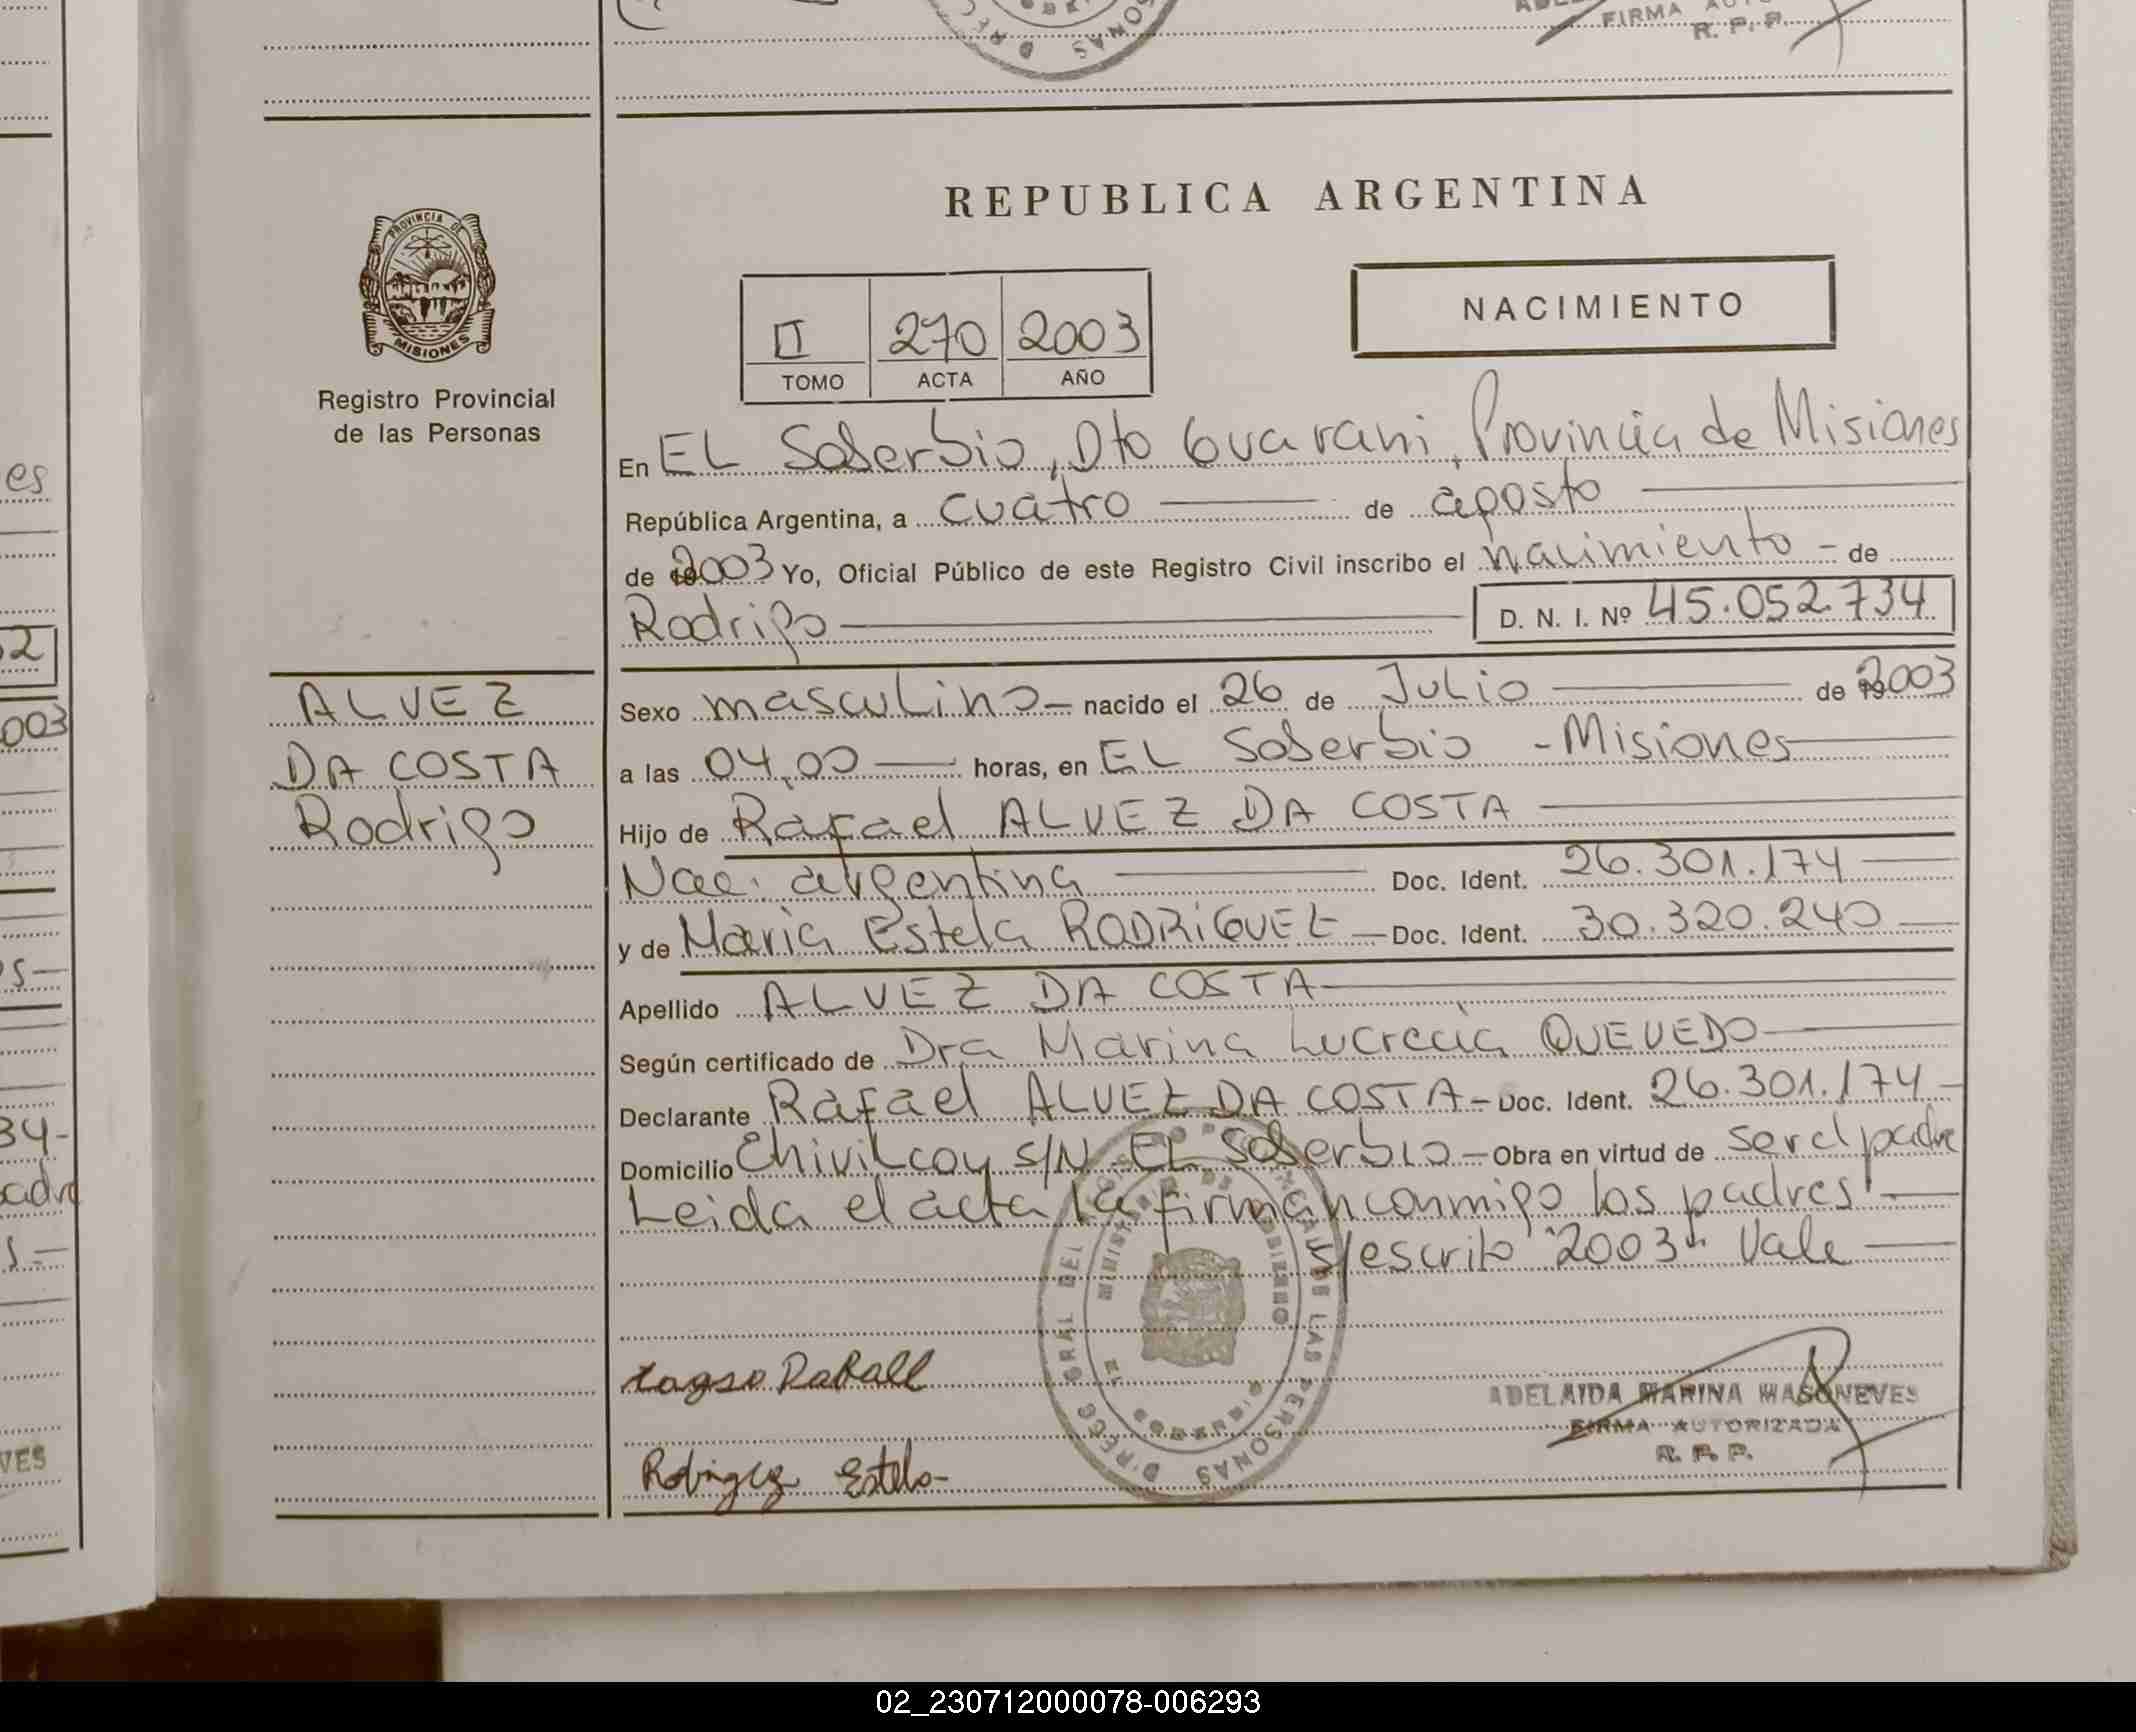 FIRMA
R. P. P.
REPUBLICA ARGENTINA
PROVINCIA DE
MISIONES
Registro Provincial
de las Personas
II 270 2003
TOMO ACTA AÑO
NACIMIENTO
En EL Soberbio, Dto Guarani, Provincia de Misiones
República Argentina, a cuatro de agosto
de 2003 Yo, Oficial Público de este Registro Civil inscribo el nacimiento - de
Rodrigo D. N. I. Nº 45.052.734
ALVEZ
DA COSTA
Rodrigo
Sexo masculino - nacido el 26 de Julio de 2003
a las 04,00 horas, en EL Soberbio - Misiones
Hijo de Rafael ALVEZ DA COSTA
Nac. argentina Doc. Ident. 26.301.174
y de Maria Estela RODRIGUEZ - Doc. Ident. 30.320.240
Apellido ALVEZ DA COSTA
Según certificado de Dra Marina Lucrecia QUEVEDO
Declarante Rafael ALVEZ DA COSTA - Doc. Ident. 26.301.174 -
Domicilio Chivilcoy S/N - EL Soberbio - Obra en virtud de ser el padre
Leida el acta la firman conmigo los padres
s/escrito "2003" Vale
Rodriguez Estela
ADELAIDA MARINA MASONEVES
FIRMA AUTORIZADA
R. P. P.
es
52
003
s-
34-
adre
s-
VES
02_230712000078-006293